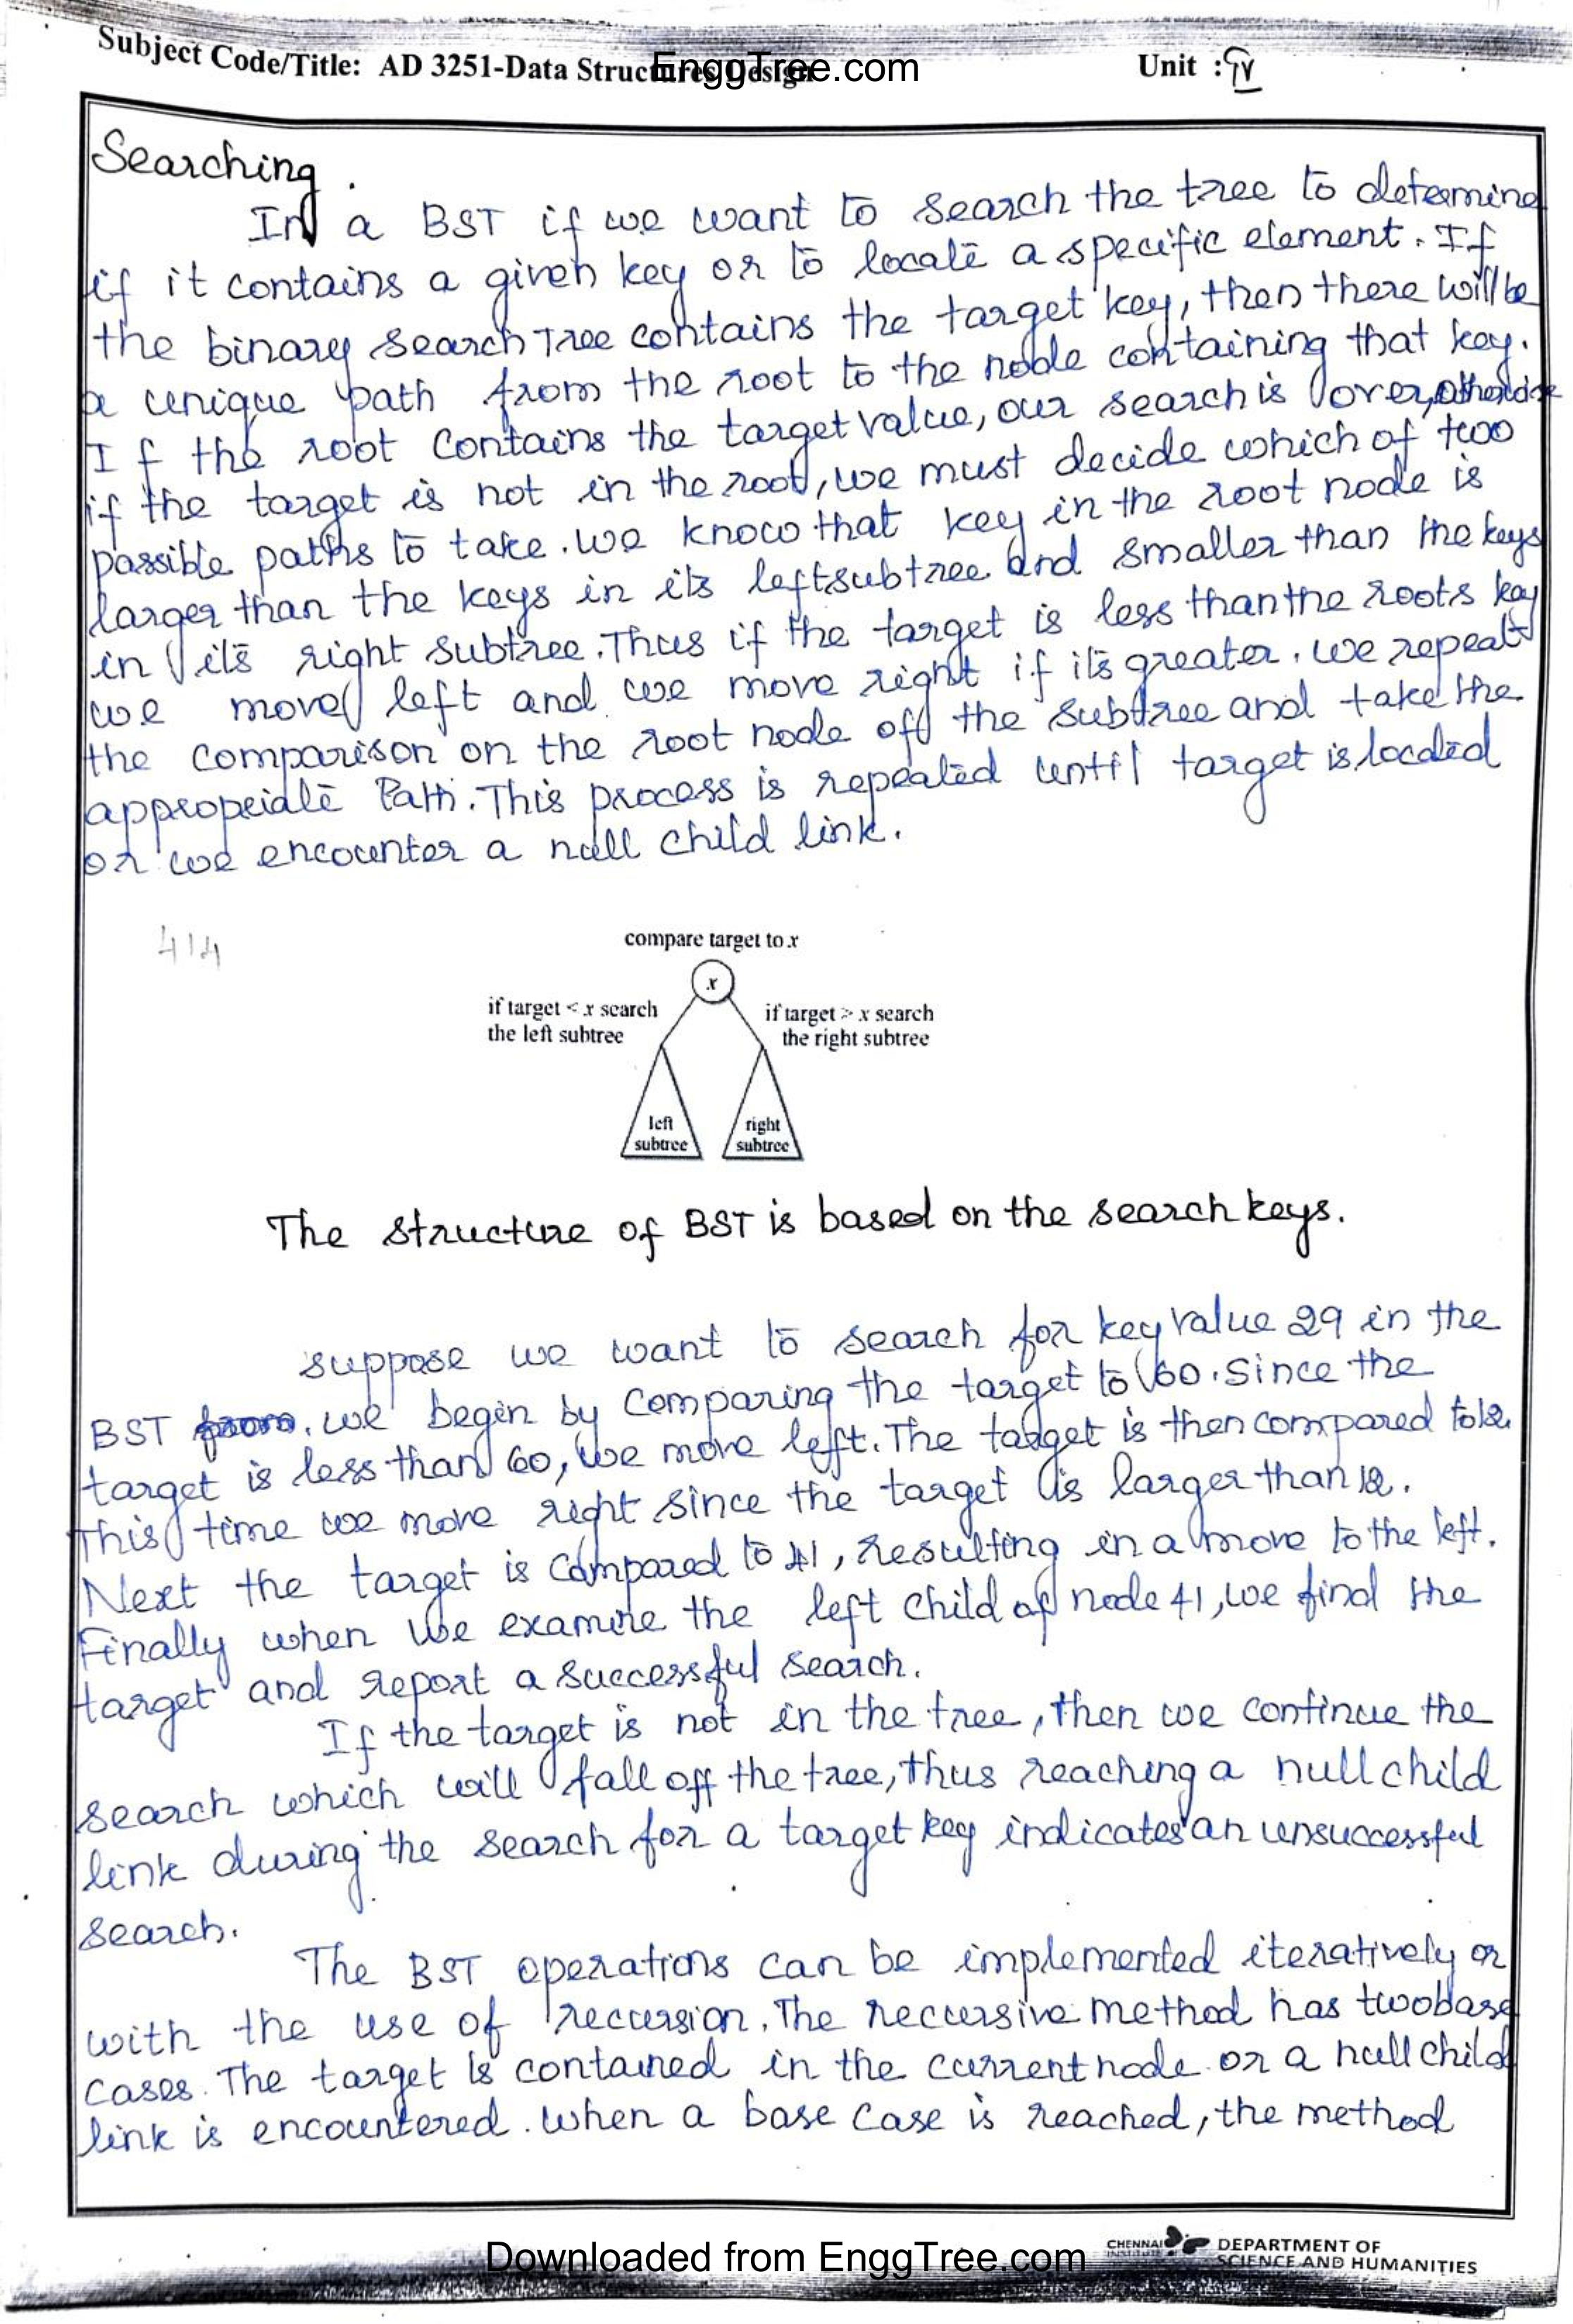 Subject Code/Title: AD 3251-Data Structures Design
EnggTree.com
Unit : IV
Searching.
In a BST if we want to search the tree to determine
if it contains a given key or to locate a specific element. If
the binary search Tree contains the target key, then there will be
a unique path from the root to the node containing that key.
If the root contains the target value, our search is over, otherwise
if the target is not in the root, we must decide which of two
possible paths to take. we know that key in the root node is
larger than the keys in its left subtree and smaller than the keys
in its right subtree. Thus if the target is less than the roots key
we move left and we move right if its greater. we repeat
the comparison on the root node off the subtree and take the
appropeiate Path. This process is repeated until target is located
or we encounter a null child link.
414
compare target to x
x
if target < x search
the left subtree
if target > x search
the right subtree
left
subtree
right
subtree
The structure of BST is based on the search keys.
suppose we want to search for key value 29 in the
BST from. we begin by comparing the target to 60. Since the
target is less than 60, we move left. The target is then compared to 12.
This time we move right since the target is larger than 12.
Next the target is compared to 41, resulting in a move to the left.
Finally when we examine the left child of node 41, we find the
target and report a successful search.
If the target is not in the tree, then we continue the
search which will fall off the tree, thus reaching a null child
link during the search for a target key indicates an unsuccessful
search.
The BST operations can be implemented iteratively or
with the use of recursion. The recursive method has two base
cases. The target is contained in the current node or a null child
link is encountered. When a base case is reached, the method
Downloaded from EnggTree.com
CHENNAI
INSTITUTE
DEPARTMENT OF
SCIENCE AND HUMANITIES